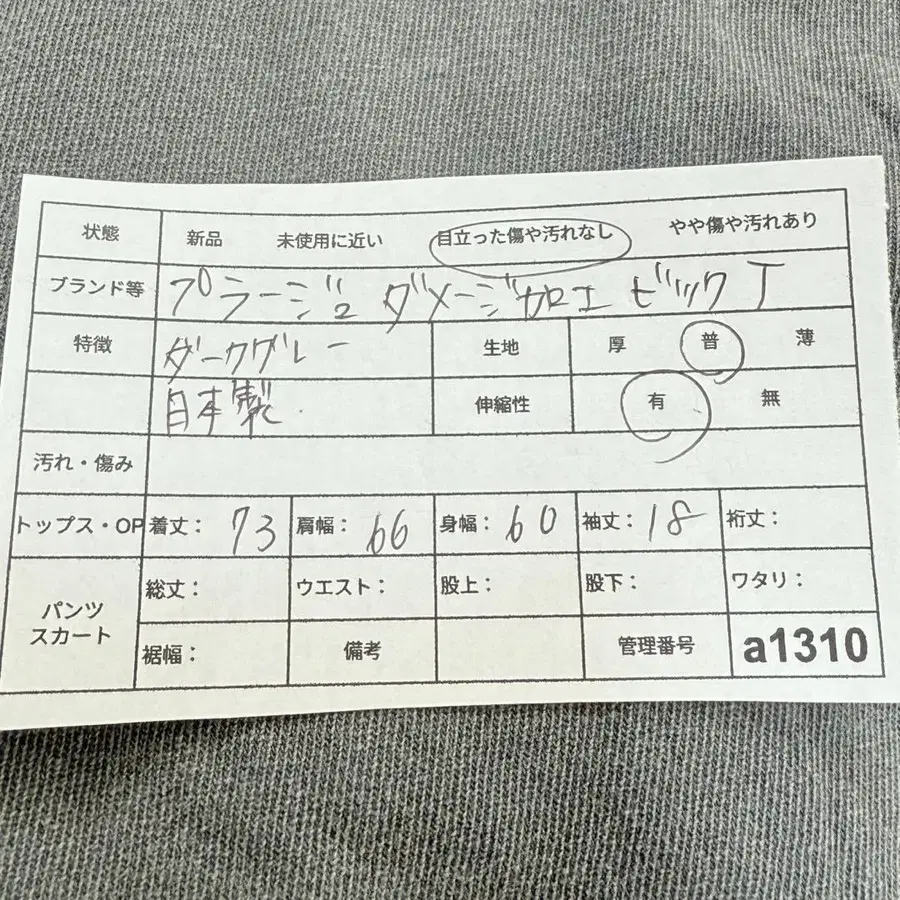 状態 新品 未使用に近い 目立った傷や汚れなし やや傷や汚れあり
ブランド等 プラージュ ダメージ加工 ビックT
特徴 ダークグレー 生地 厚 普 薄
日本製 伸縮性 有 無
汚れ・傷み
トップス・OP 着丈: 73 肩幅: 66 身幅: 60 袖丈: 18 裄丈:
パンツ スカート 総丈: ウエスト: 股上: 股下: ワタリ:
裾幅: 備考 管理番号 a1310